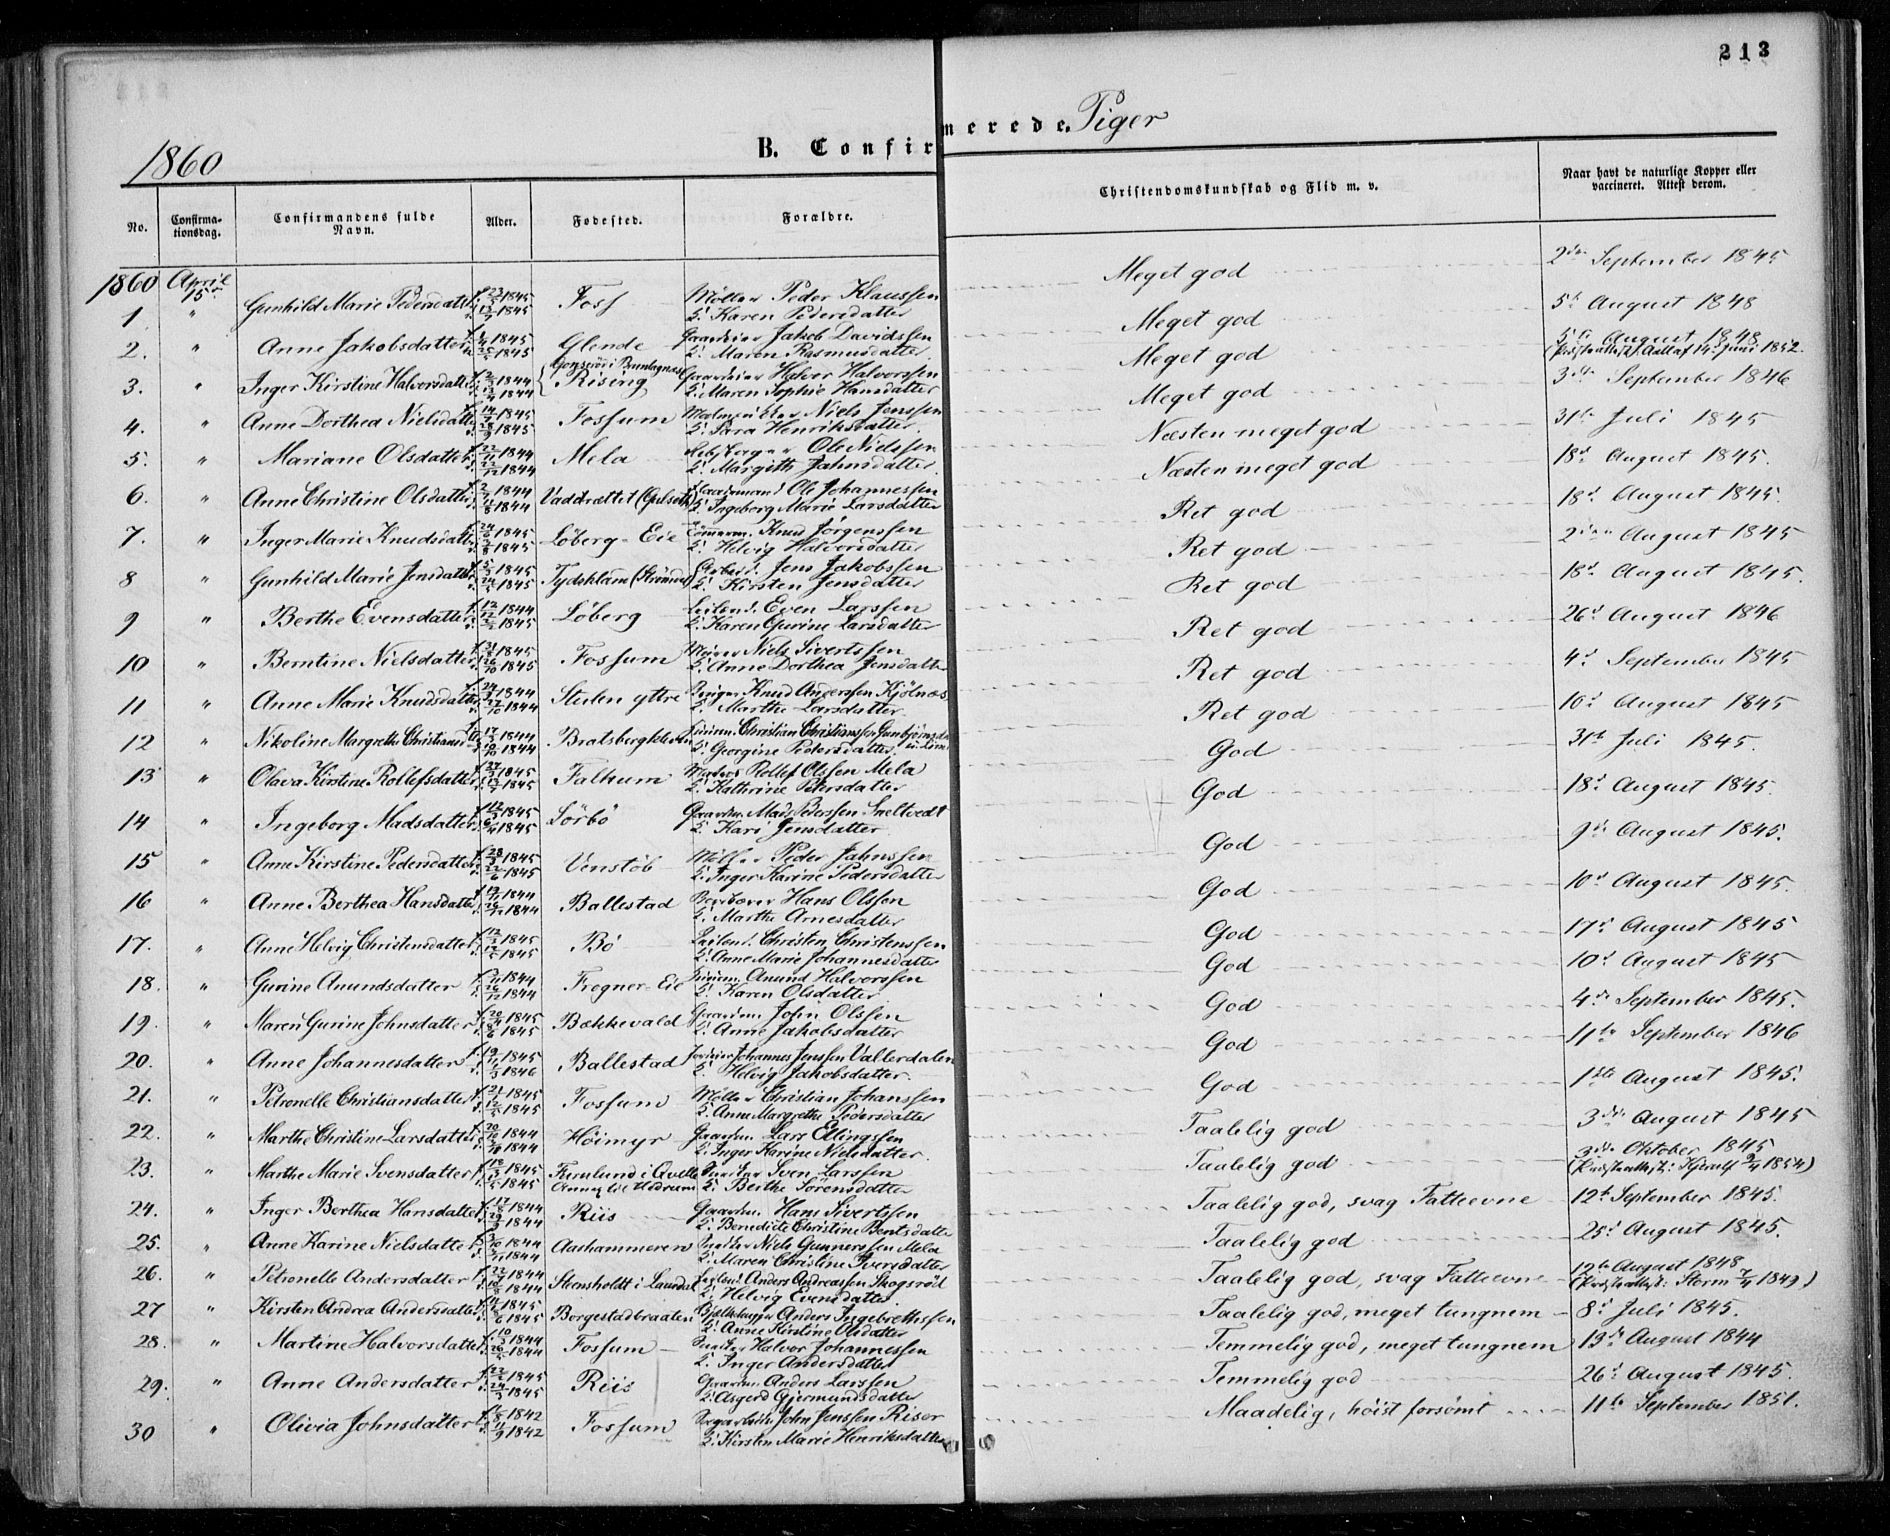 213
1860
B. Confirmerede. Piger
No.
Confirma-
tionsdag.
Confirmandens fulde
Navn.
Alder.
Fødested.
Forældre.
Christendomskundskab og Flid m. v.
Naar havt de naturlige Kopper eller
vaccineret. Attest derom.
1860 April 15
1 " Gunhild Marie Pedersdatter 1845 1845 Foss Møller Peder Klaussen Karen Pedersdatter Meget god September 1845
2. " Anne Jakobsdatter 1845 1845 Glende Jakob Davidssen Maren Rasmusdatter Meget god 5 August 1848
3. " Inger Kirstine Halvorsdatter 1844 1844 Rising Halvor Halvorssen Maren Sophie Hansdatter Meget god August 1848 14 Juni 1852
4. " Anne Dorthea Nielsdatter 1845 1845 Fossum Niels Jenssen Sara Henriksdatter Meget god 3 September 1846
5. " Mariane Olsdatter 1844 1844 Mela Ole Nielssen Margith Jahnsdatter Næsten meget god 31te Juli 1845
6. " Anne Christine Olsdatter 1844 1844 Ole Johannessen Ingeborg Marie Larsdatter Næsten meget god 18 August 1845.
7. " Inger Marie Knudsdatter 1845 1845 Löberg-Eie Knud Jörgenssen Helvig Halvorsdatter Ret god 18 August 1845.
8 " Gunhild Marie Jensdatter 1845 1845 Jens Jakobssen Kirsten Jensdatter Ret god August 1845
9 " Berthe Evensdatter 1844 1845 Löberg Even Larssen Karen Gurine Larsdatter Ret god 18 August 1845.
10 " Berntine Nielsdatter 1845 1845 Fossum Niels Sivertssen Anne Dorthea Jensdatter Ret god 26 August 1846
11 " Anne Marie Knudsdatter 1844 1844 Stulen yttre Knud Anderssen Kjölnæs Marthe Larsdatter Ret god 4 September 1845
12 " Nikoline Margrethe 1844 1844 Bratsbergkleven Georgine Pedersdatter Ret god 10 August 1845
13 " Olava Kirstine Rollefsdatter 1845 1845 Falkum Rollef Olssen Mela Kathrine Petersdatter God 31te Juli 1845.
14 " Ingeborg Madsdatter 1845 1845 Sörbö Mads Pederssen Sneltvedt Kari Jensdatter God 18 August 1845.
15 " Anne Kirstine Pedersdatter 1845 1845 Venstöb Møller Peder Jahnssen Inger Karine Pedersdatter God 9 August 1845.
16 " Anne Berthea Hansdatter 1844 1844 Ballestad Hans Olssen Marthe Arnesdatter God 10 August 1845.
17. " Anne Helvig Christensdatter 1845 1845 Bö Christen Christenssen Anne Marie Johannesdatter God 17 August 1845
18. " Gurine Anundsdatter 1844 1844 Frogner-Eie Anund Halvorssen Karen Olsdatter God 10 August 1845
19. " Maren Gurine Johnsdatter 1845 1845 Bækkevald John Olssen Anne Jakobsdatter God 4 September 1845.
20. " Anne Johannesdatter 1845 1846 Ballestad Johannes Jenssen Vallerdalen Helvig Jakobsdatter. God 11te September 1846
21. " Petronelle Christiansdatter 1845 1845 Fossum Møller Christian Johanssen Anne Margrethe Pedersdatter God August 1845.
22. " Marthe Christine Larsdatter 1844 1844 Höimyr Lars Ellingssen Inger Karine Nielsdatter. Taalelig god 3 August 1845
23. " Marthe Marie Svensdatter 1845 1845 Sven Larssen Berthe Sörensdatter Taalelig god Oktober 1845 1854)
24. " Inger Berthea Hansdatter 1844 1844 Riis Hans Sivertssen Benedicte Christine Bentsdatter Taalelig god, svag Fatteevne 12te September 1845.
25. " Anne Karine Nielsdatter 1844 1844 Aashammeren Niels Gunnerssen Mela Maren Christine Iversdatter Taalelig god 25 August 1845.
26. " Petronelle Andersdatter 1844 1844 Stensholdt i Anders Andreassen Skogsröd Helvig Evensdatter Taalelig god, svag Fatteevne 12te August 1848 Storm 1849)
27 " Kirsten Andrea Andersdatter 1845 1845 Borgestadbraaten Anders Ingebrethssen Anne Kirstine Olsdatter Taalelig god, meget tungnem 8 Juli 1845.
28. " Martine Halvorsdatter 1844 1844 Fossum Halvor Johannessen Inger Andersdatter Temmelig god, meget tungnem 13 August 1844
29. " Anne Andersdatter 1845 1845 Riis Anders Larssen Asgerd Gjermundsdatter Temmelig god 26 August 1845.
30 " Olivia Johnsdatter 1842 1842 Fossum John Jenssen Riser Kirsten Marie Henriksdatter Maadelig, höist forsömt 11te September 1851.